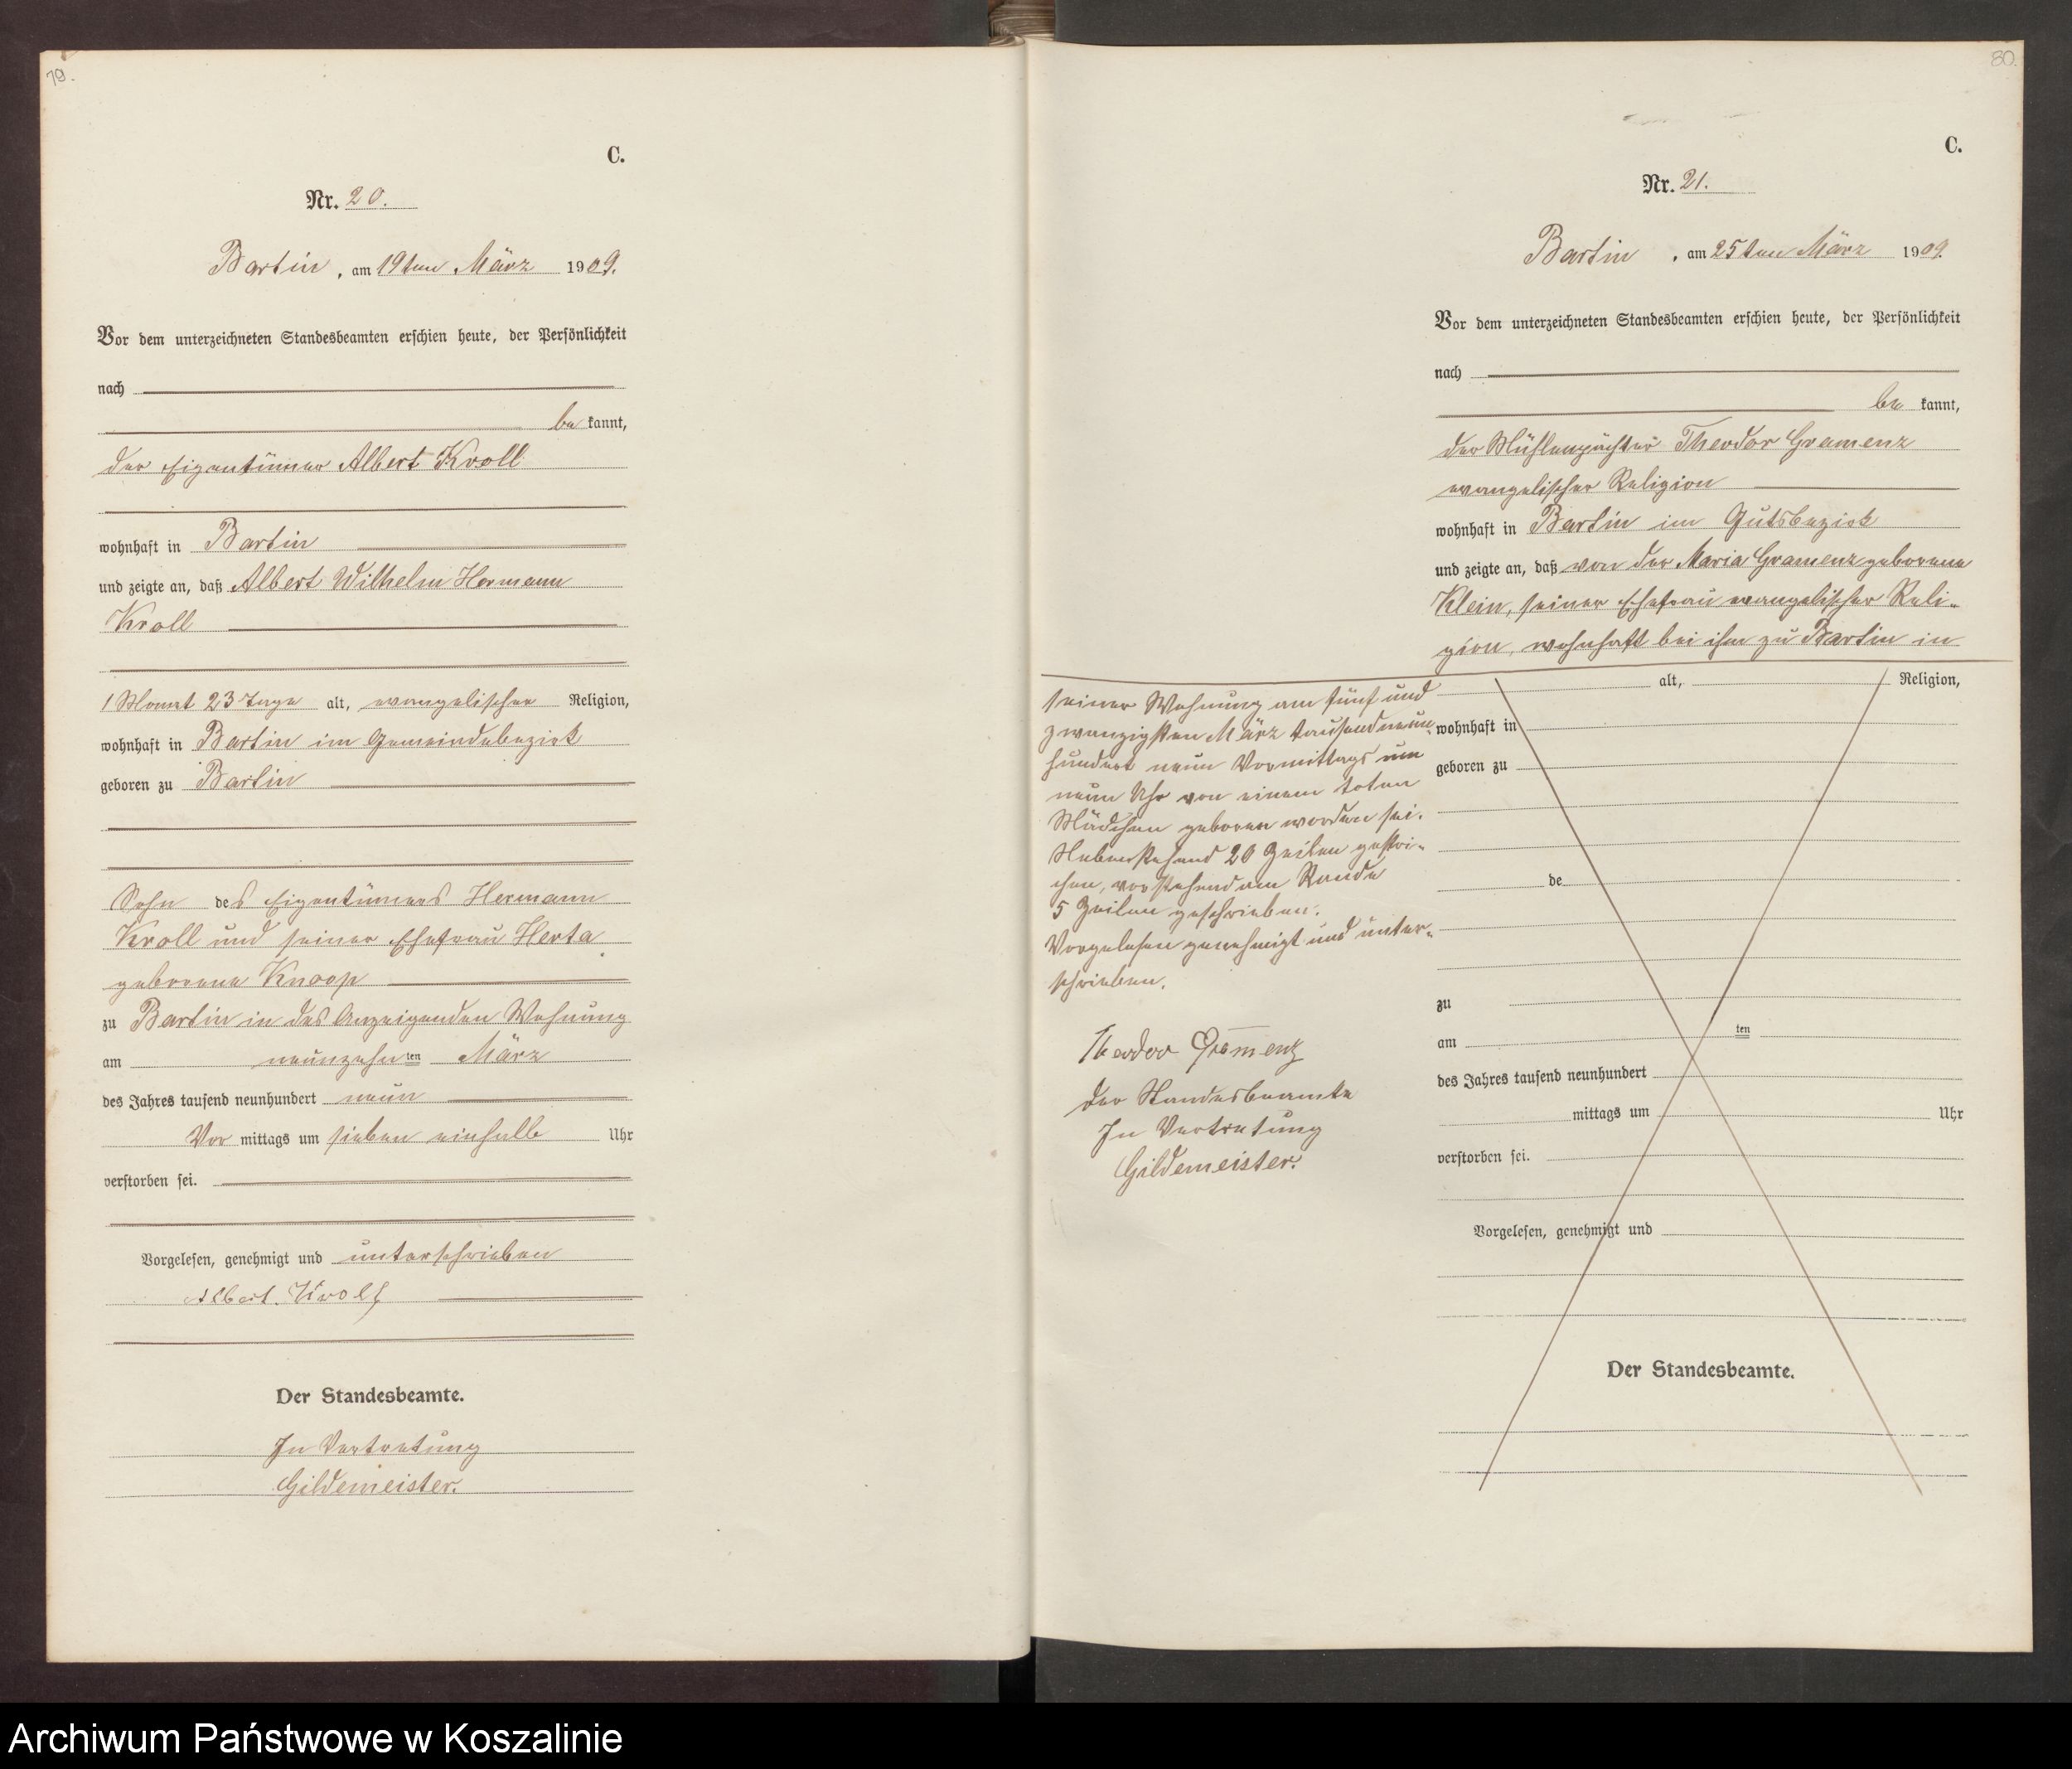 79.
C.
Nr. 20.
Bartin, am 19ten März 1909.
Vor dem unterzeichneten Standesbeamten erschien heute, der Persönlichkeit
nach
be kannt,
der Eigentümer Albert Kroll
wohnhaft in Bartin
und zeigte an, daß Albert Wilhelm Hermann
Kroll
1 Monat 23 Tage alt, evangelischer Religion,
wohnhaft in Bartin im Gemeindebezirk
geboren zu Bartin
Sohn des Eigentümers Hermann
Kroll und seiner Ehefrau Herta
geborene Knoop
zu Bartin in des Anzeigenden Wohnung
am neunzehn ten März
des Jahres tausend neunhundert neun
Vor mittags um sieben einhalb Uhr
verstorben sei.
Vorgelesen, genehmigt und unterschrieben
Albert. Kroll
Der Standesbeamte.
In Vertretung
Gildemeister.
80.
C.
Nr. 21.
Bartin, am 25ten März 1909.
Vor dem unterzeichneten Standesbeamten erschien heute, der Persönlichkeit
nach
be kannt,
der Mühlenpächter Theodor Gramenz
evangelischer Religion
wohnhaft in Bartin im Gutsbezirk
und zeigte an, daß von der Maria Gramenz geborene
Klein, seiner Ehefrau evangelischer Reli-
gion, wohnhaft bei ihm zu Bartin in
seiner Wohnung am fünf und
zwanzigsten März tausend neun-
hundert neun Vormittags um
neun Uhr von einem toten
Mädchen geboren worden sei.
Nebenstehend 20 Zeilen gestri-
chen, vorstehend am Rande
5 Zeilen geschrieben.
Vorgelesen genehmigt und unter-
schrieben.
Theodor Gramenz
Der Standesbeamte
In Vertretung
Gildemeister.
alt, Religion,
wohnhaft in
geboren zu
de
zu
am ten
des Jahres tausend neunhundert
mittags um Uhr
verstorben sei.
Vorgelesen, genehmigt und
Der Standesbeamte.
Archiwum Państwowe w Koszalinie